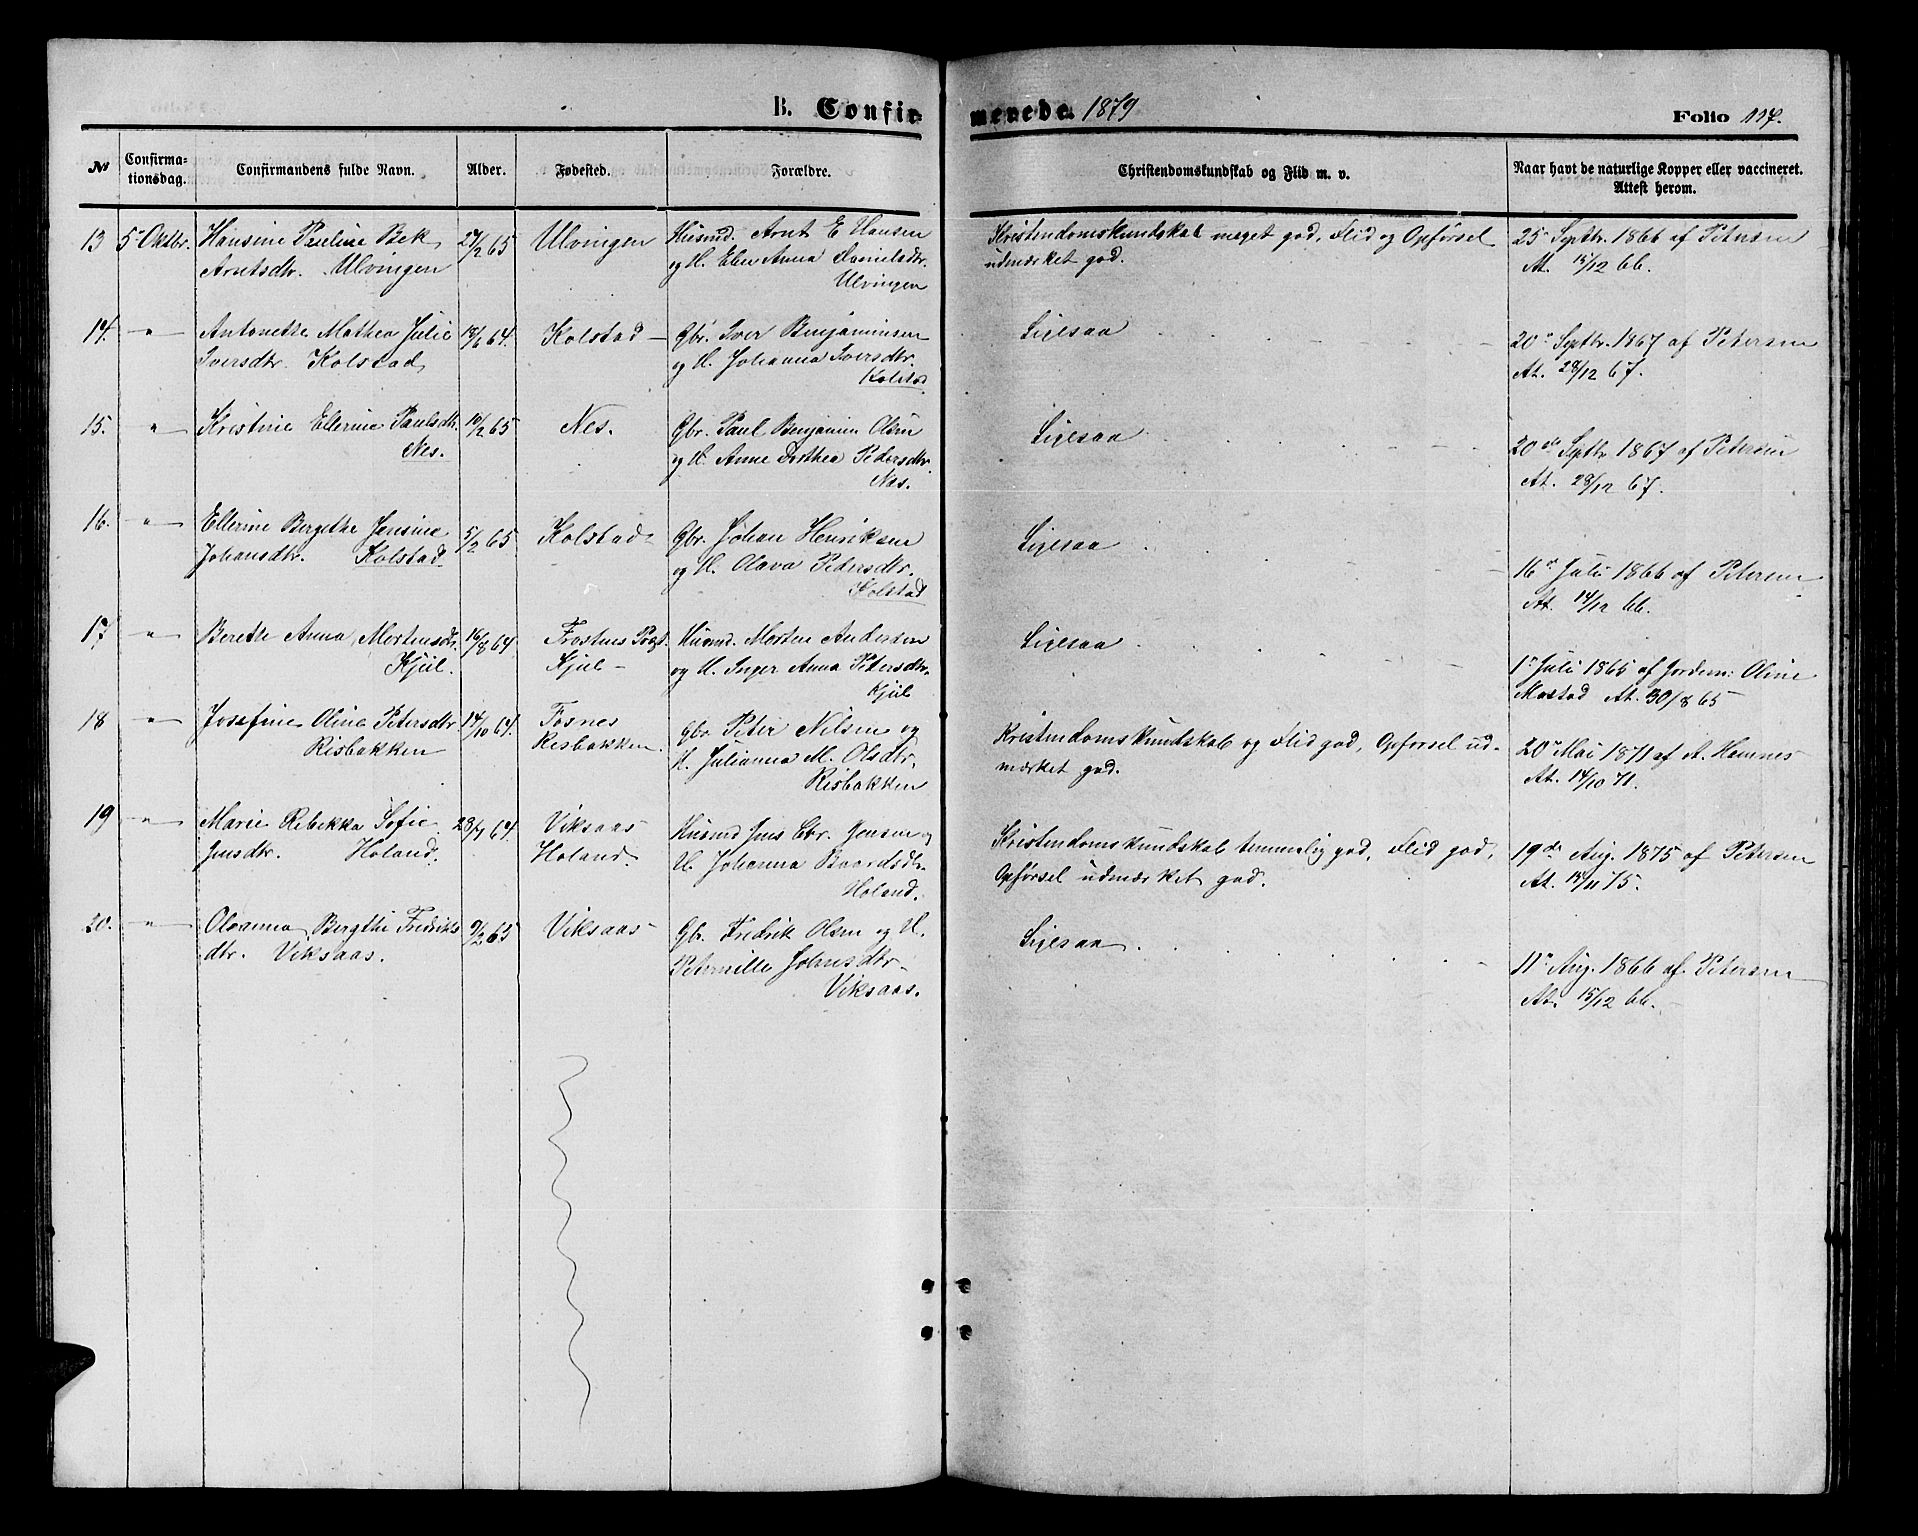 B. Confirmerede. 1879
Folio 117.
No
Confirmationsdag.
Confirmandens fulde Navn.
Alder.
Fødested.
Forældre.
Christendomskundskab og Flid m. v.
Naar havt de naturlige Kopper eller vaccineret.
Attest herom.
13 5te Oktbr. Hansine Pauline Bek 27/2 65 Ulvingen Husmd. Arnt E Hansen Kristendomskundskab meget god, Flid og Opførsel 25 Septbr. 1866 af Petersen
Arntsdtr. Ulvingen og H. Elen Anna Danielsdtr. udmærket god. At. 15/12 66.
Ulvingen
14. " Antonette Mathea Julie 18/6 64. Kolstad Gbr. Iver Benjaminsen Ligesaa 20de Septbr. 1867 af Petersen
Iversdtr. Kolstad og H. Johanna Iversdtr. At. 28/12 67.
Kolstad
15. " Kristine Ellerine Paulsdtr. 10/2 65 Nes. Gbr. Paul Benjamin Olsen Ligesaa 20de Septbr. 1867 af Petersen
Nes. og H. Anne Dorthea Pedersdtr. At. 28/12 67.
Nes.
16. " Ellerine Bergithe Jensine 5/2 65 Kolstad Gbr. Johan Henriksen Ligesaa 16de Juli 1866 af Petersen
Johansdtr. Kolstad og H. Olava Pedersdtr. At. 14/12 66.
Kolstad
17 " Berette Anna Mortensdtr. 16/8 64. Frostnes Husmd. Morten Andersen Ligesaa 1te Juli 1865 af Jordem: Oline
Kjül. Kjül og H. Inger Anna Petersdtr. Mostad At. 30/8 65
Kjül
18 " Josefine Oline Petersdtr. 14/10 64. Fosnes Gbr. Peter Nilsen og Kristendomskundskab og Flid god, Opførsel ud- 20de Mai 1871 af A. Hamnes
Risbakken Risbakken. H. Julianna M. Olsdtr. mærket god. At. 14/10 71.
Risbakken
19 " Marie Rebekka Sofie 28/7 64. Viksaas Husmd Jens Chr. Jensen og Kristendomskundskab temmelig god, Flid god, 19de Aug. 1875 af Petersen
Jensdtr. Holand. Holand. H. Johanna Baardsdtr. Opførsel udmærket god. At. 15/11 75.
Holand.
20. " Oleanna Bergthe Fredriks 9/2 65 Viksaas Gbr. Fredrik Olsen og H. Ligesaa 11te Aug. 1866 af Petersen
dtr. Viksaas. Peternille Johnsdtr. At. 15/12 66.
Viksaas.